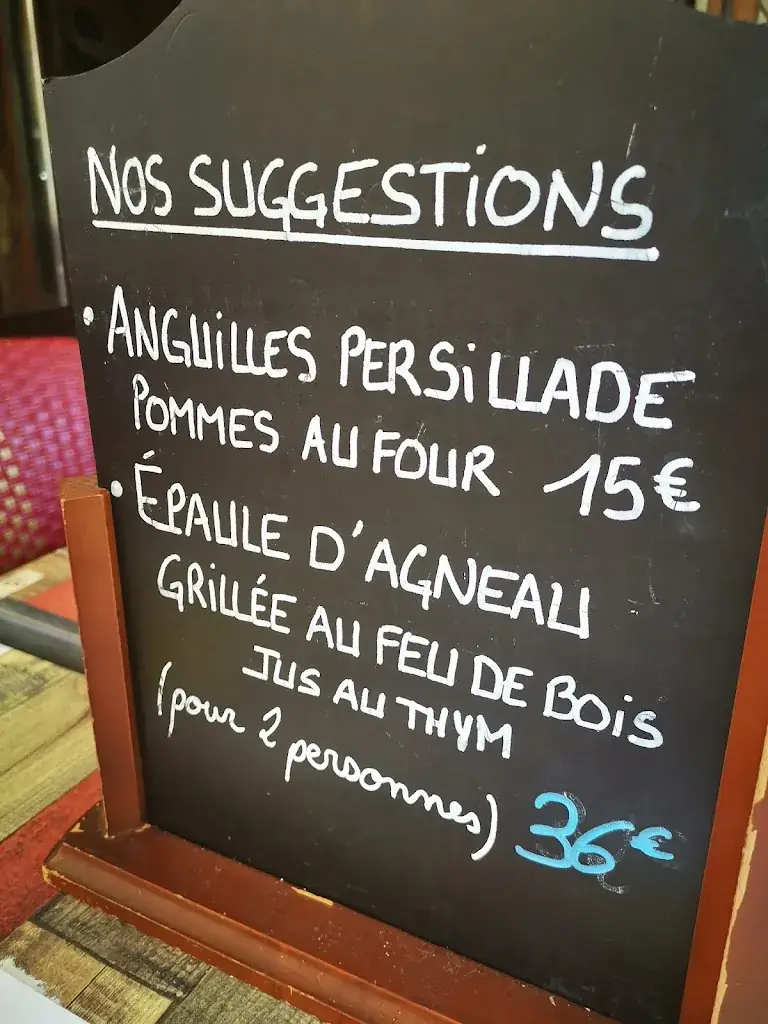 NOS SUGGESTIONS
• ANGUILLES PERSILLADE
POMMES AU FOUR 15€
• ÉPAULE D'AGNEAU
GRILLÉE AU FEU DE BOIS
JUS AU THYM
(pour 2 personnes) 36€